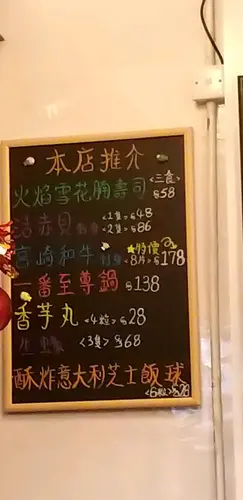 本店推介
火焰雪花腩壽司 <三食> $58
活赤貝 <1隻> $48
<2隻> $86
宮崎和牛 ★特價 <8片> $178
一番至尊鍋 $138
香芋丸 <4粒> $28
生 <3隻> $68
酥炸意大利芝士飯球
<6粒> $78